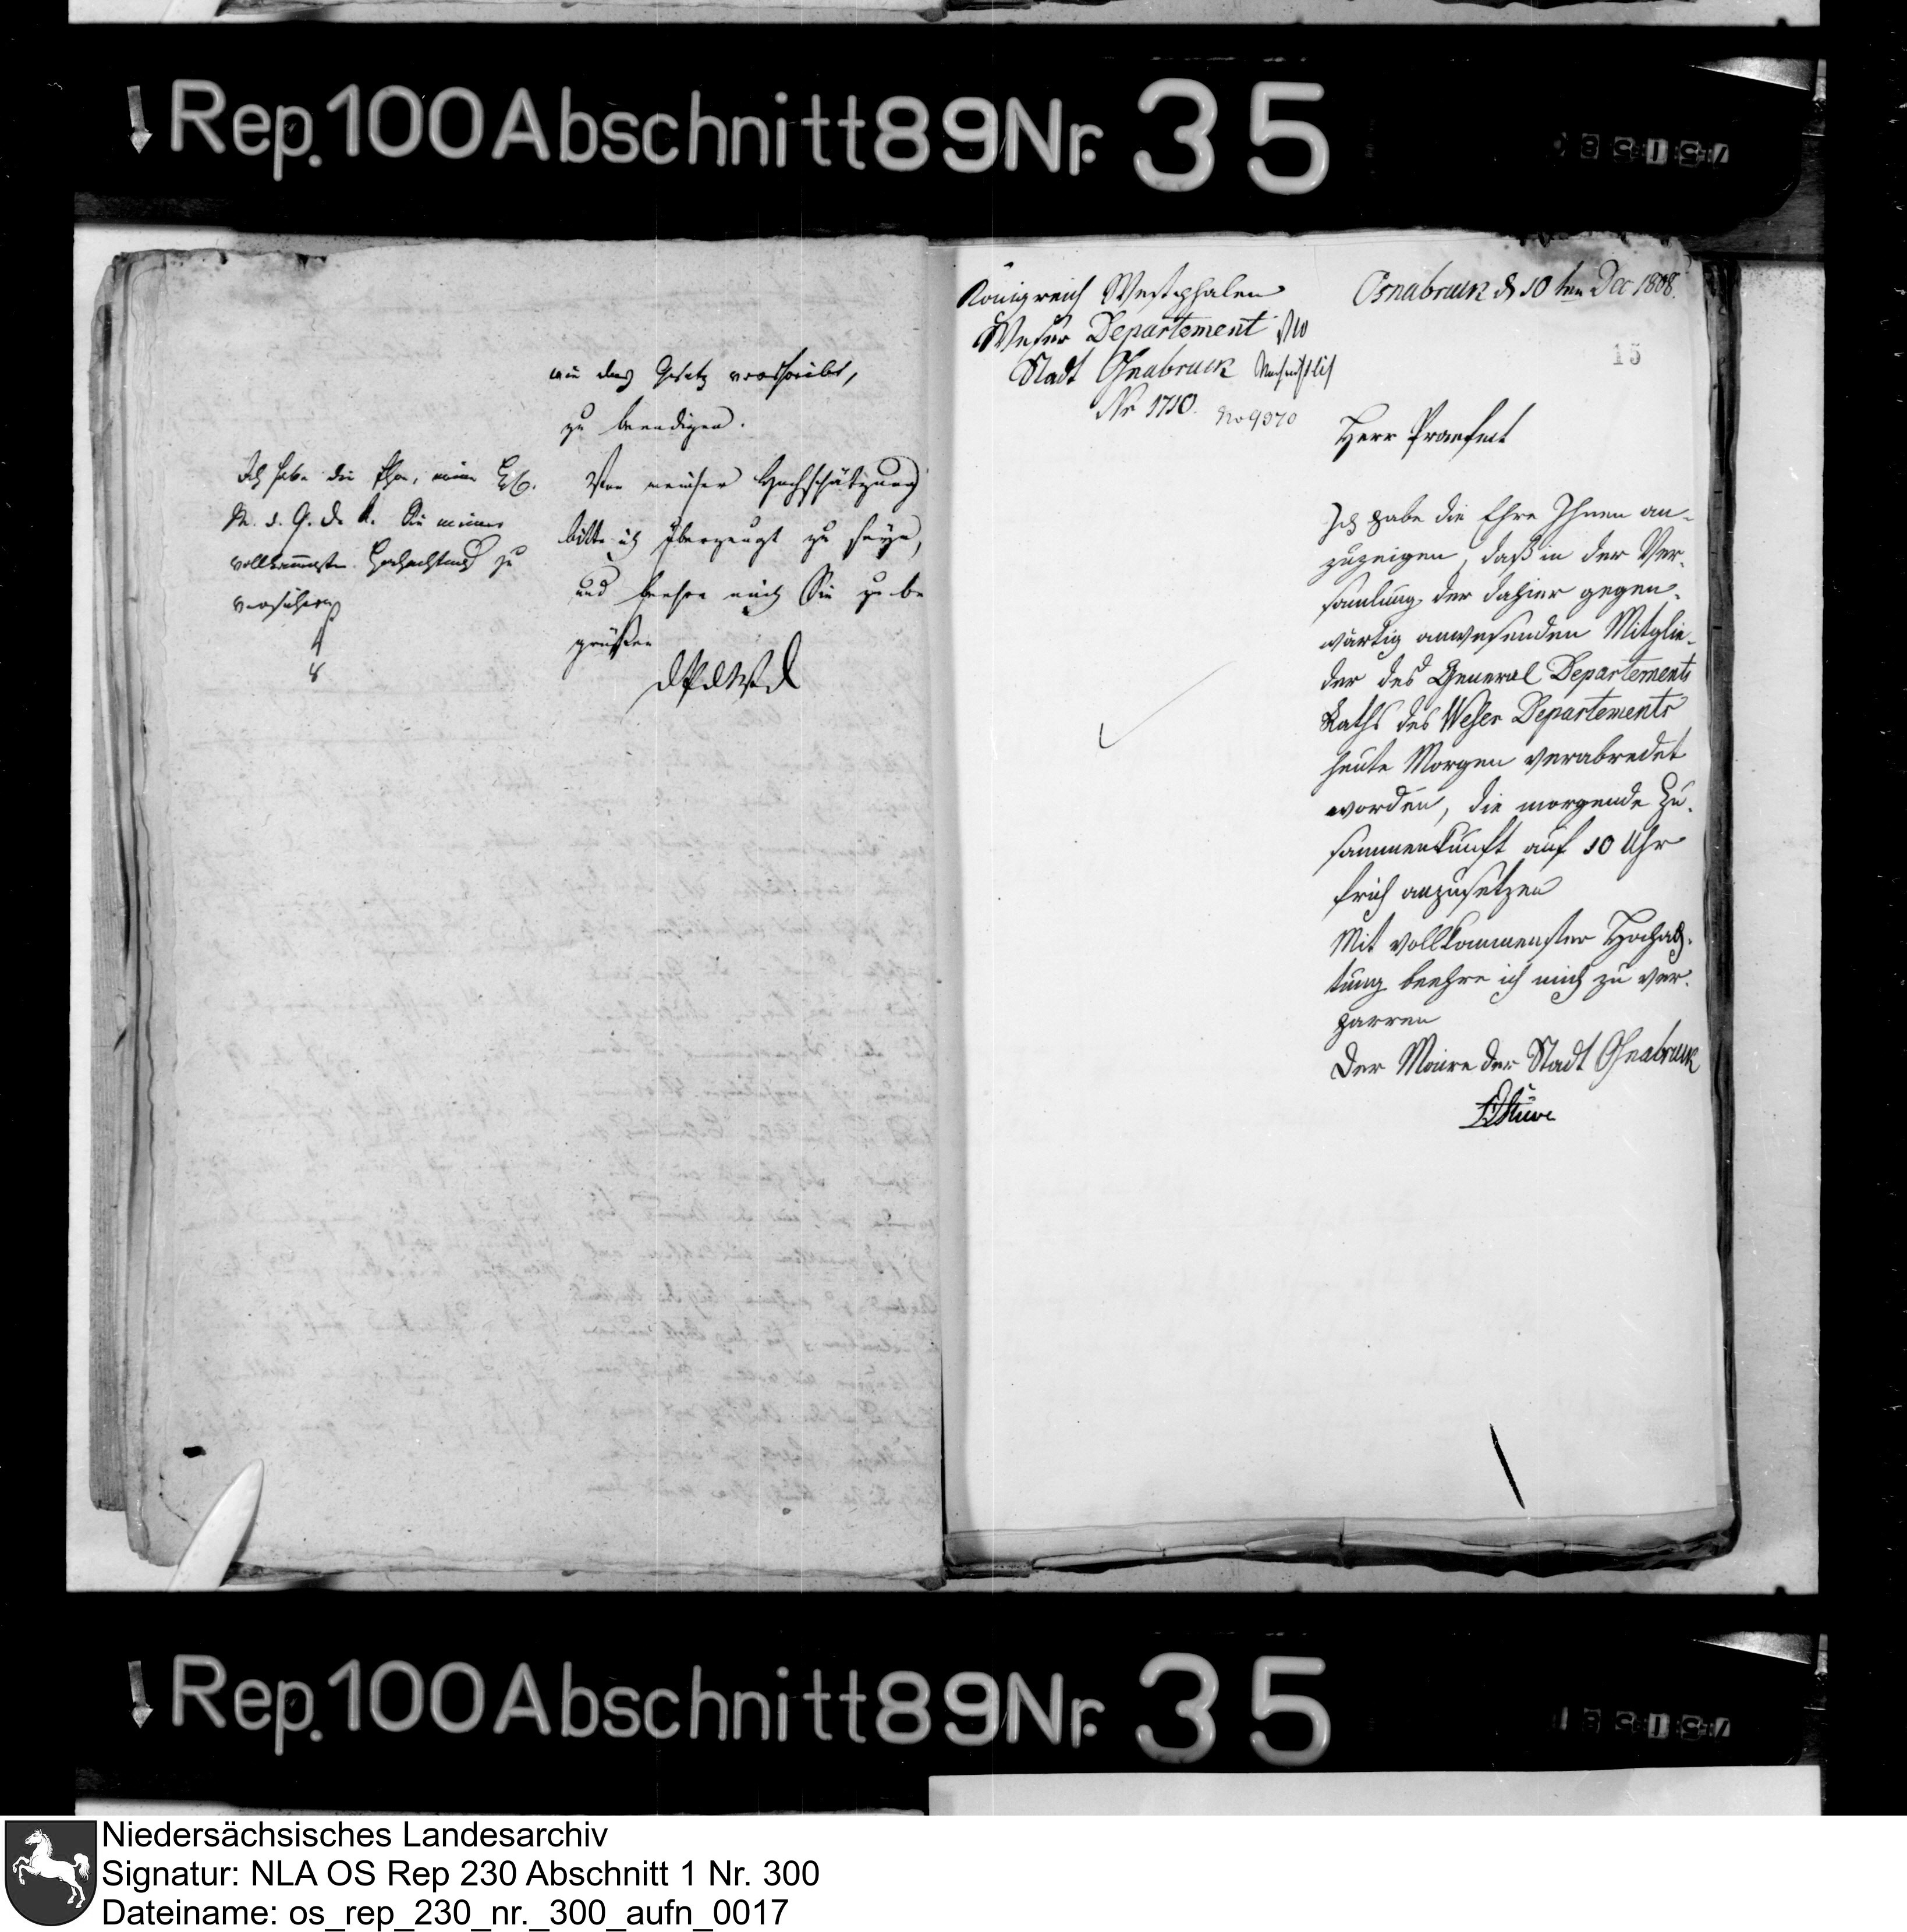 Rep. 100 Abschnitt 89 Nr. 35
wie das Gesetz vorschreibt,
zu beendigen.
Ich habe die Ehre, meine
M. d. G. d. R. Sie meiner
vollkommensten Hochachtung zu
versichern
8
Von meiner Hochschätzung
bitte ich überzeugt zu seyn,
und beehre mich Sie zu be
grüßen
DPdWD
Königreich Westphalen
Weser Departement
Stadt Osnabruck
Nr 1710.
No 9370
Osnabruck d 10ten Dec 1808.
15
Herr Praefect
Ich habe die Ehre Ihnen an-
zuzeigen, daß in der Ver-
samlung der dahier gegen-
wärtig anwesenden Mitglie-
der des General Departements
Raths des Weser Departements
heute Morgen verabredet
worden, die morgende Zu-
sammenkunft auf 10 Uhr
früh anzusetzen
Mit vollkommenster Hochach-
tung beehre ich mich zu ver-
harren
Der Maire der Stadt Osnabruck
Stüve
Rep. 100 Abschnitt 89 Nr. 35
Niedersächsisches Landesarchiv
Signatur: NLA OS Rep 230 Abschnitt 1 Nr. 300
Dateiname: os_rep_230_nr._300_aufn_0017